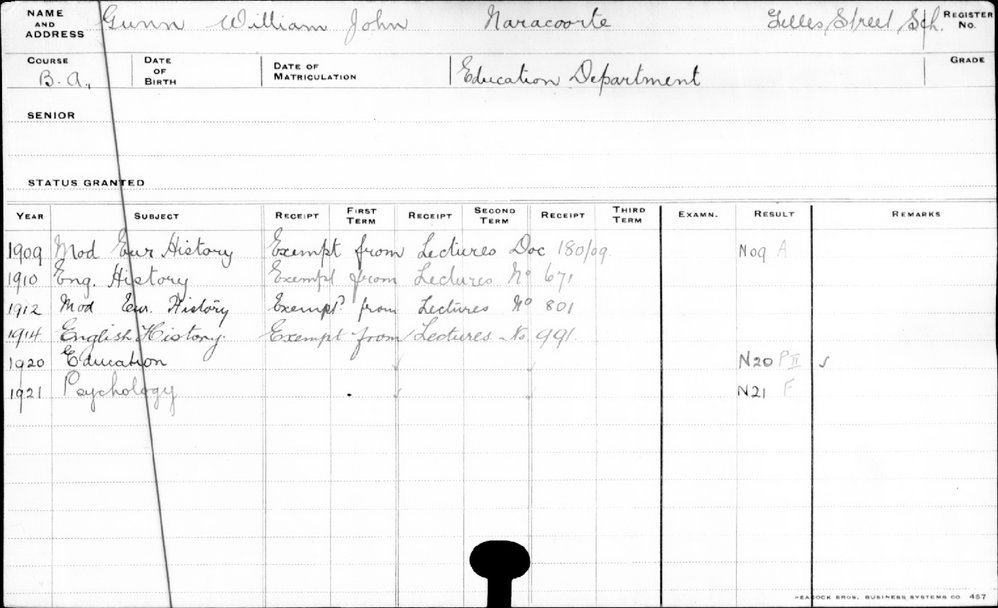 NAME AND ADDRESS Gunn William John Naracoorte Gilles Street Sch. REGISTER No.
COURSE B.A., DATE OF BIRTH DATE OF MATRICULATION Education Department GRADE
SENIOR
STATUS GRANTED
YEAR SUBJECT RECEIPT FIRST TERM RECEIPT SECOND TERM RECEIPT THIRD TERM EXAMN. RESULT REMARKS
1909 Mod Eur History Exempt from Lectures Doc 180/09 N09 A
1910 Eng. History Exempt from Lectures No 671
1912 Mod Eur. History Exempt from Lectures No 801
1914 English History. Exempt from Lectures No. 991.
1920 Education ✓ ✓ N20 P II ✓
1921 Psychology ✓ ✓ N21 F
PEACOCK BROS. BUSINESS SYSTEMS CO 457